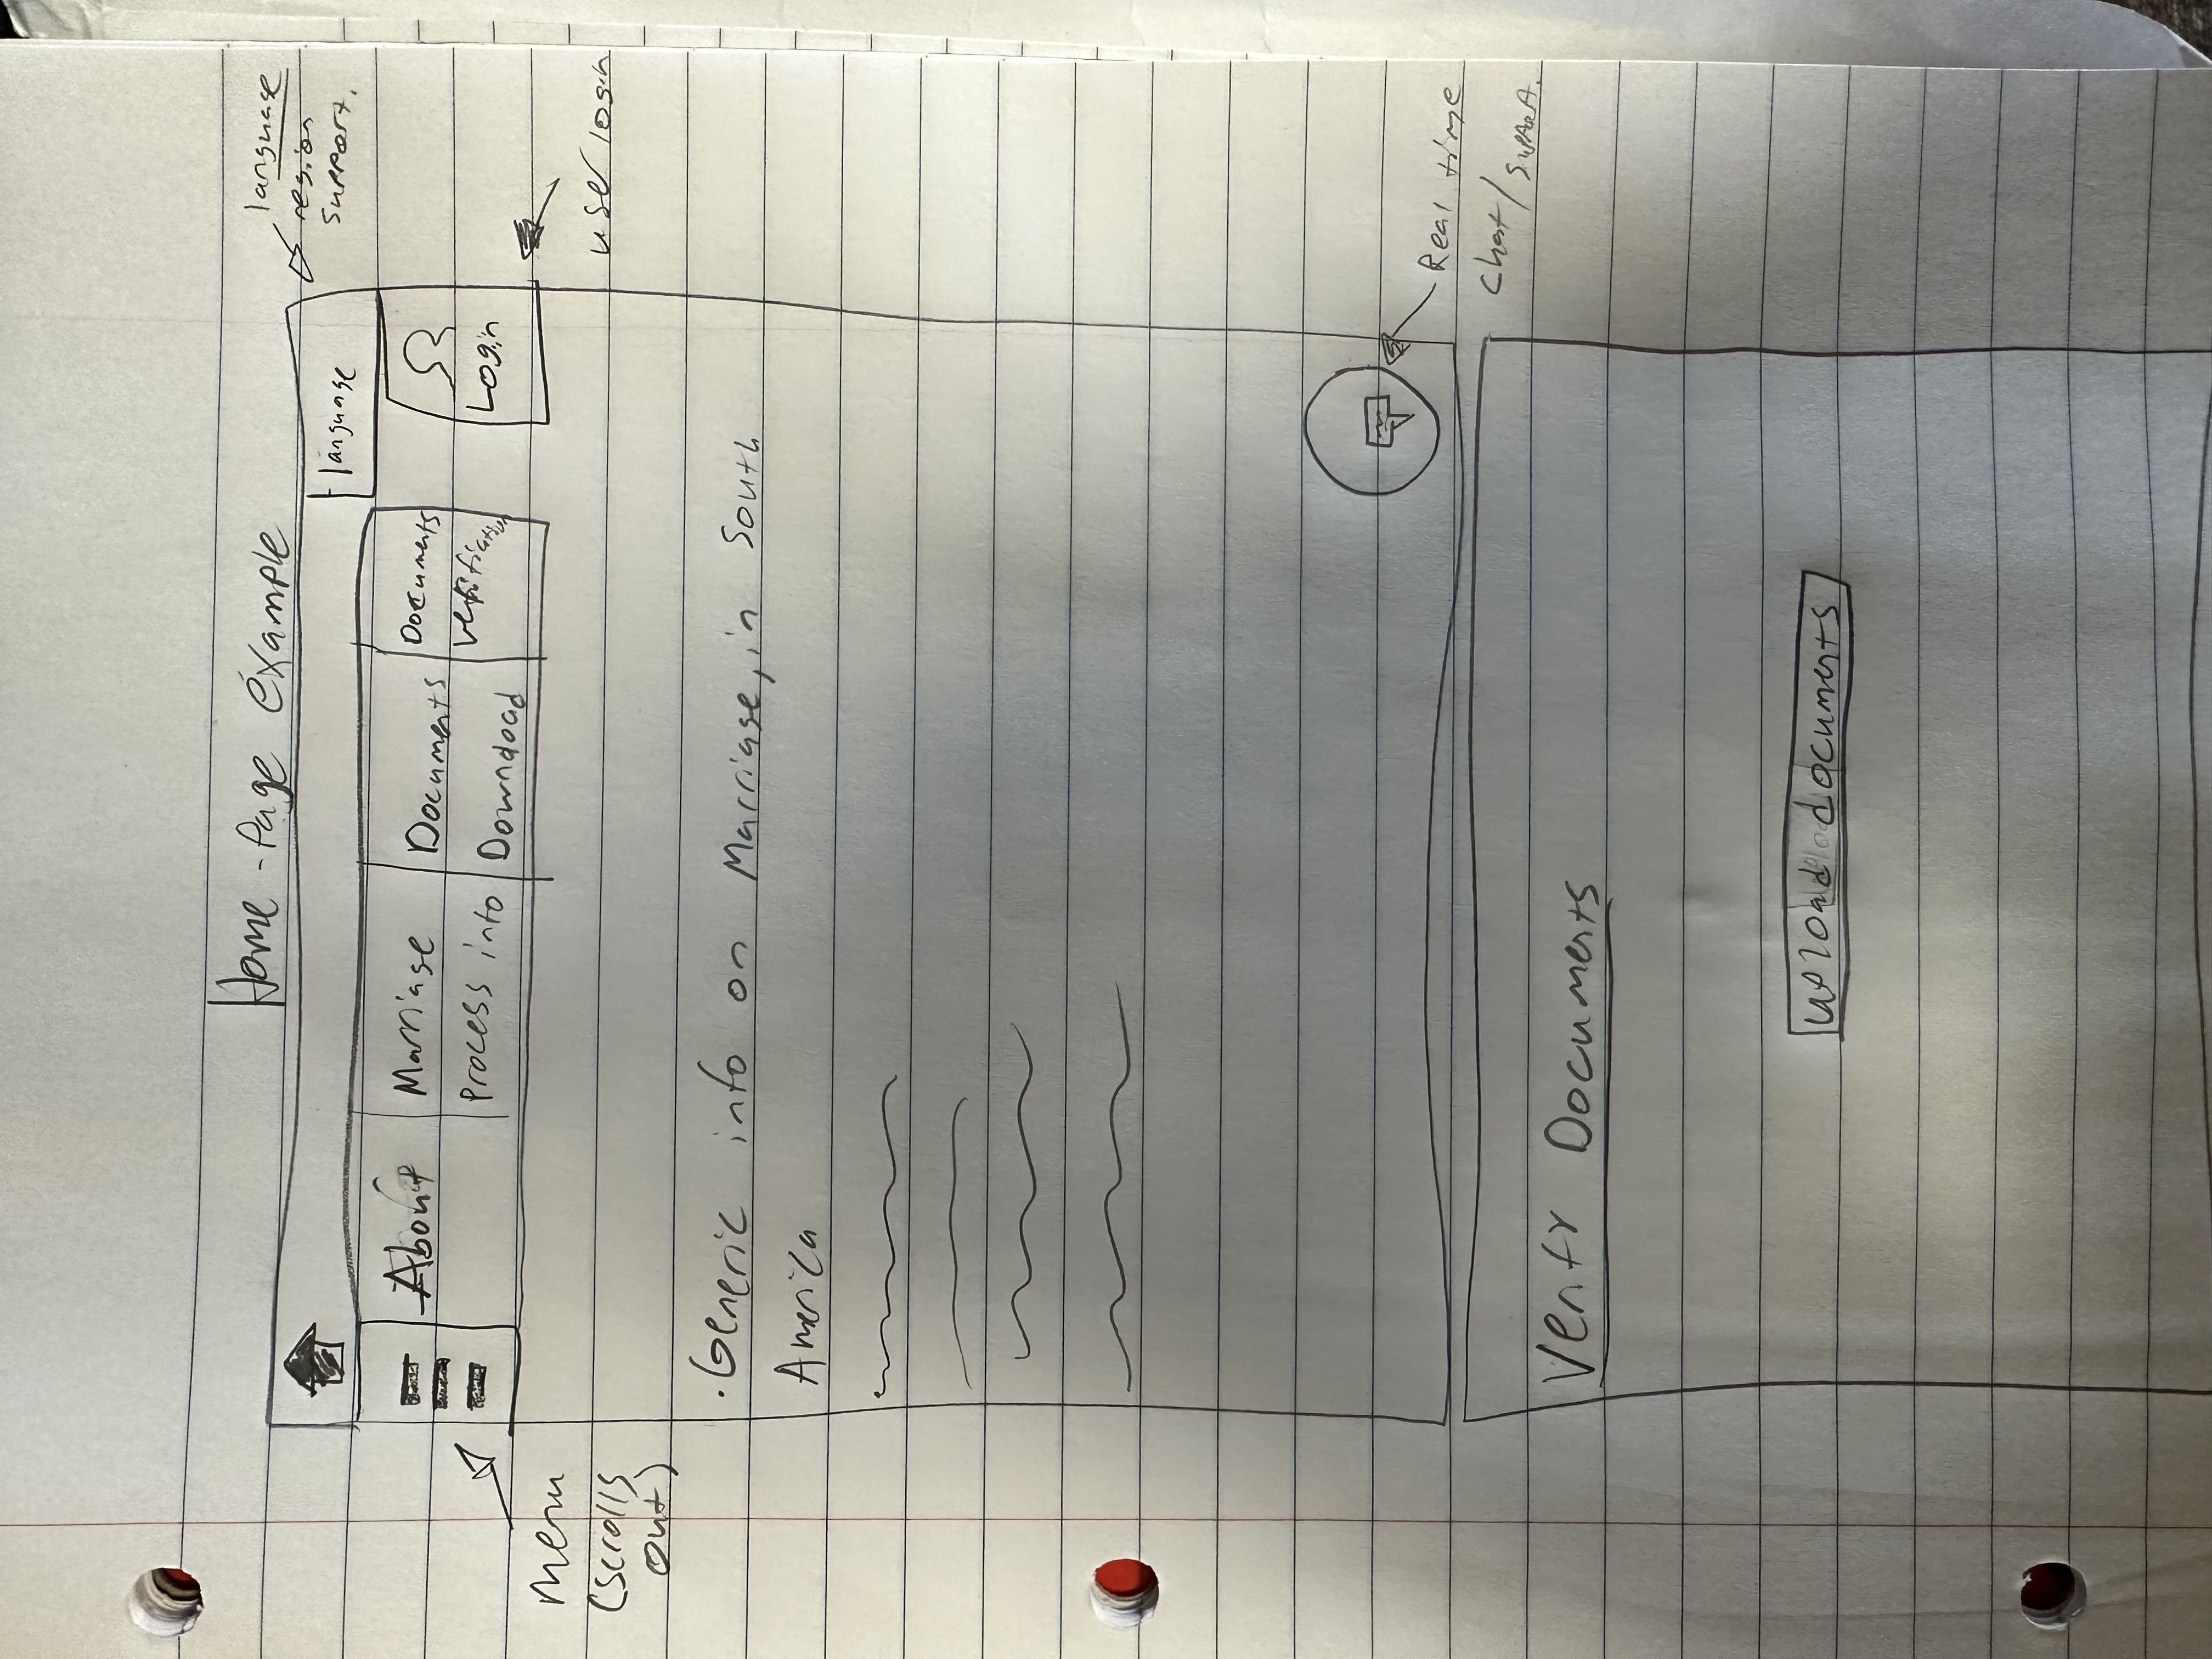 Home-Page example
language
region
support.
language
About
Marriage
process into
Documents
Download
Documents
verification
Login
menu
(scrolls
out)
user login
. Generic info on Marriage, in South
America
Real time
chat/support.
Verify Documents
upload documents